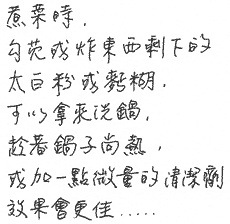 煮菜時，
勾芡或炸東西剩下的
太白粉或麵糊，
可以拿來洗鍋，
趁著鍋子尚熱，
或加一點微量的清潔劑
效果會更佳.....